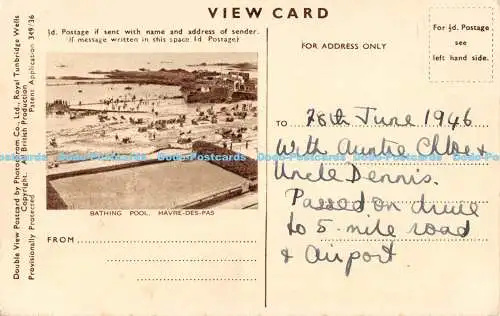 VIEW CARD
½d. Postage if sent with name and address of sender.
(If message written in this space 1d. Postage)
FOR ADDRESS ONLY
For ½d. Postage
see
left hand side.
Double View Postcard by Photochrom Co., Ltd., Royal Tunbridge Wells
Copyright. All British Production
Patent Application 349/36
Provisionally Protected
BATHING POOL, HAVRE-DES-PAS
FROM
TO 28th June 1946
With Auntie Chloe &
Uncle Dennis.
Passed on drive
to 5-mile road
& Airport
Dods-Postcards
www.dods-postcards.com